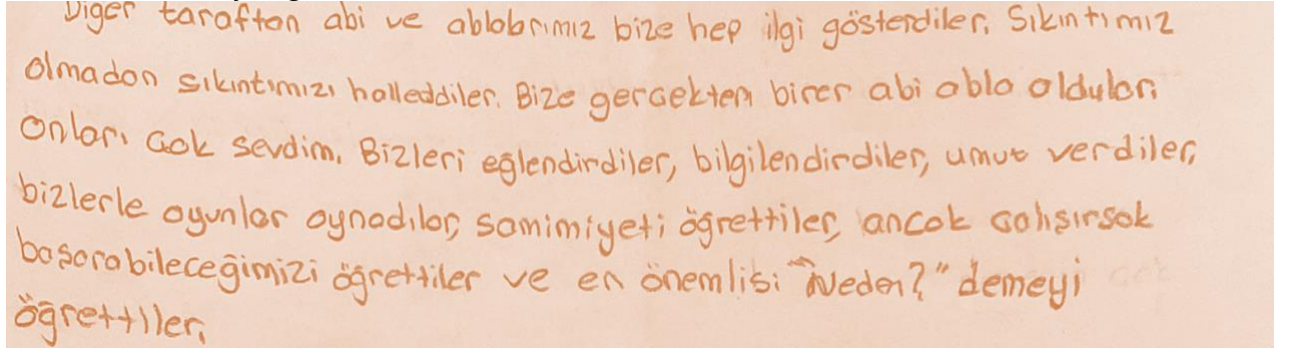 Diğer taraftan abi ve ablalarımız bize hep ilgi gösterdiler. Sıkıntımız
olmadan sıkıntımızı halleddiler. Bize gerçekten birer abi abla oldular.
Onları çok sevdim. Bizleri eğlendirdiler, bilgilendirdiler, umut verdiler,
bizlerle oyunlar oynadılar, samimiyeti öğrettiler, ancak çalışırsak
başarabileceğimizi öğrettiler ve en önemlisi "Neden?" demeyi
öğrettiler.